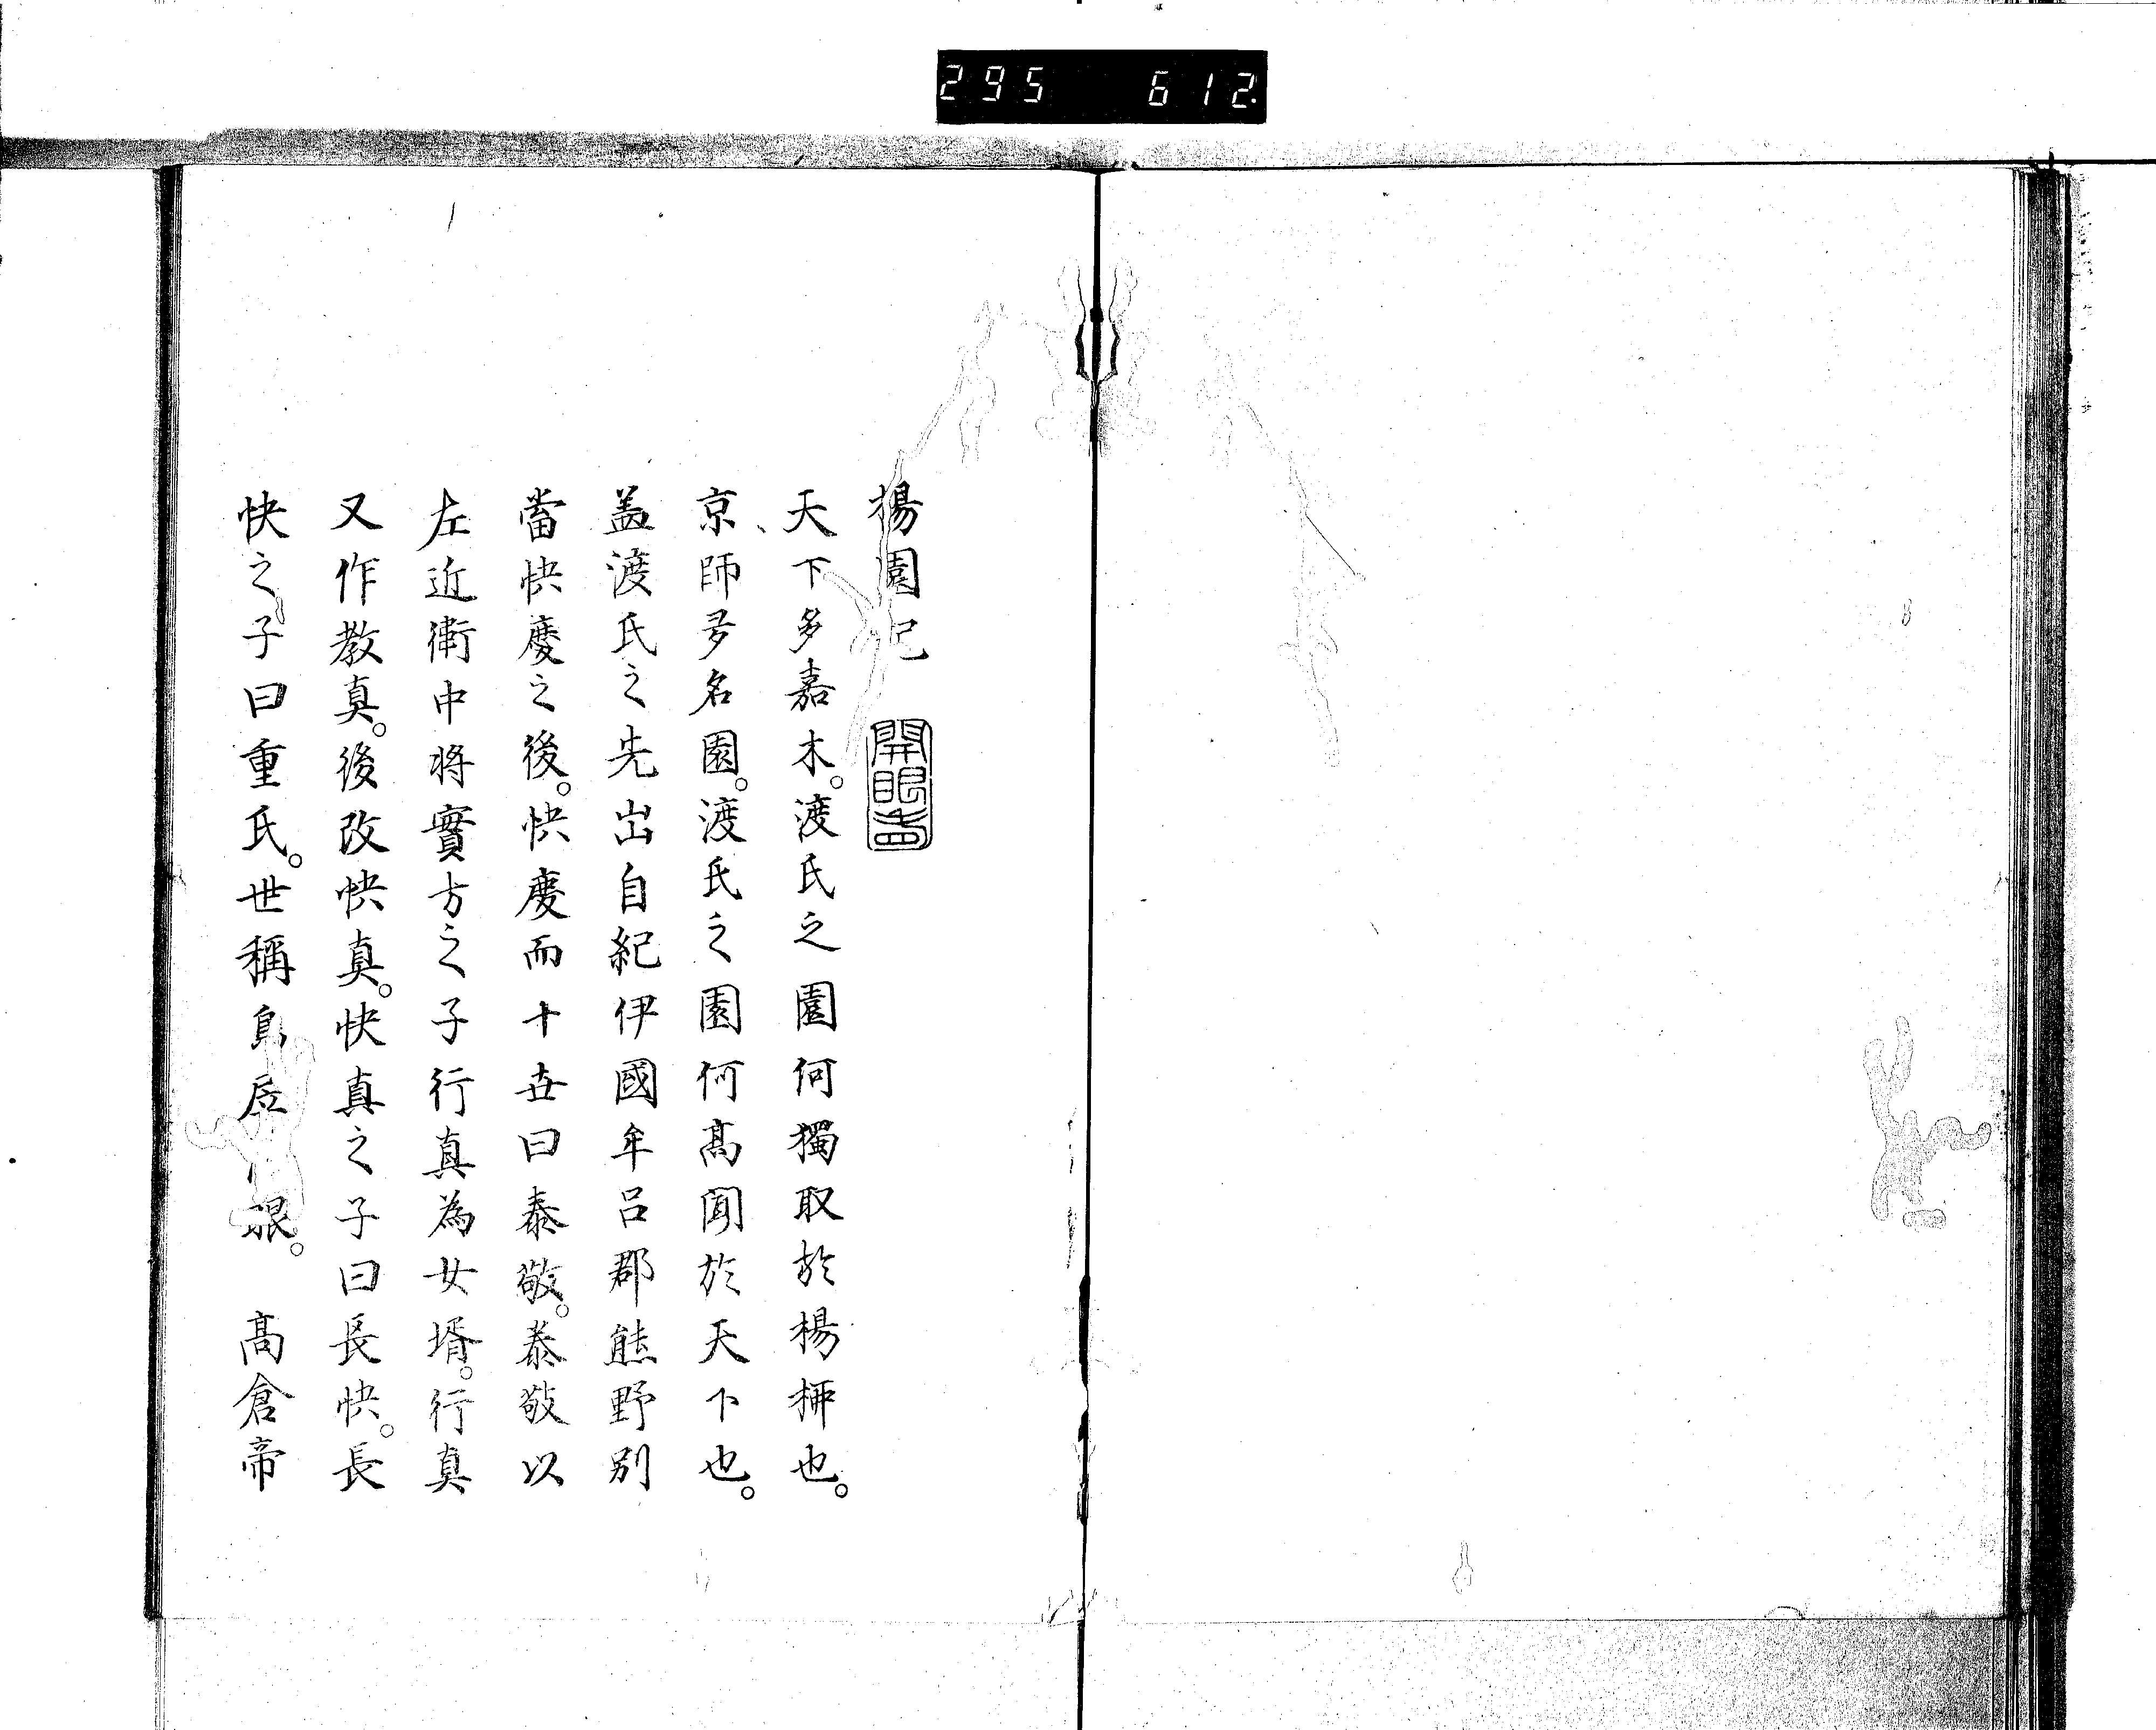 295 612
楊園記
天下多嘉木。渡氏之園何獨取於楊柳也。
京師多名園。渡氏之園何髙聞於天下也。
盖渡氏之先出自紀伊國牟呂郡熊野別
當快慶之後。快慶而十世曰泰敬。泰敬以
左近衛中将實方之子行真為女壻。行真
又作教真。後改快真。快真之子曰長快。長
快之子曰重氏。世稱鳥 眼。 髙倉帝